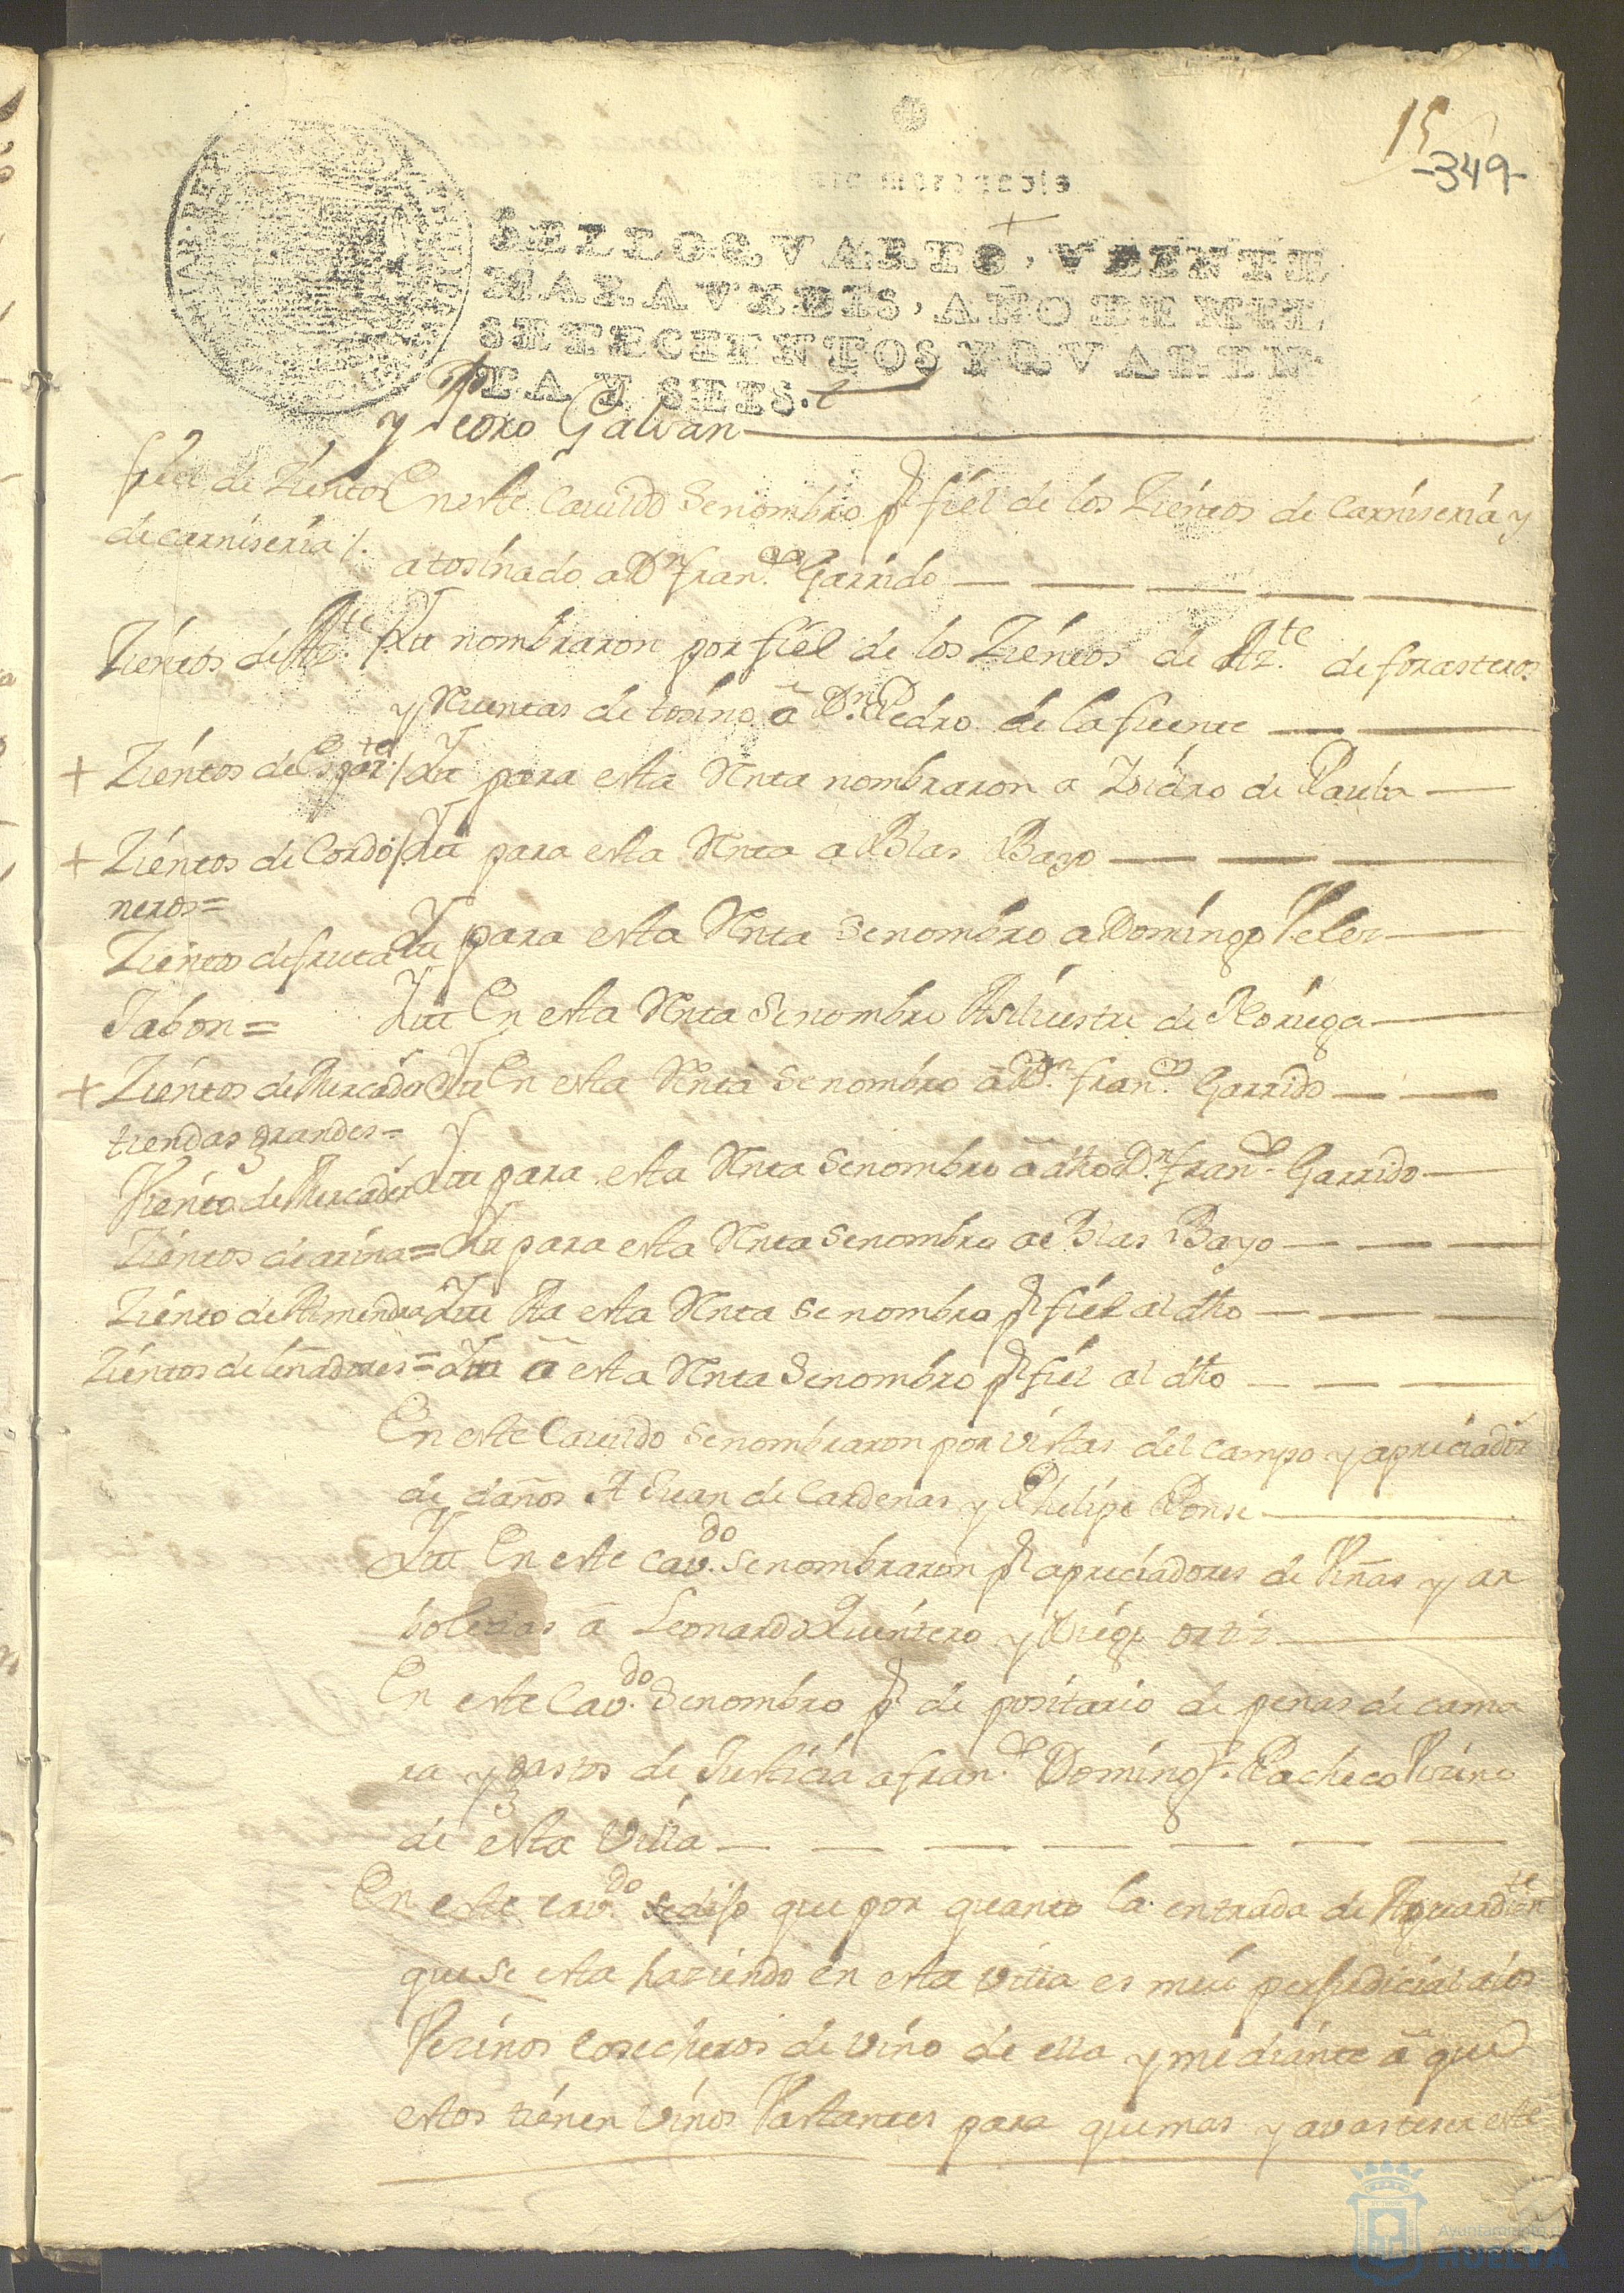 15
-349-
SELLO QVARTO, VEINTE
MARAVEDIS, AÑO DE MIL
SETECIENTOS Y QVAREN
TA Y SEIS.
y Pedro Galvan
fiel de Zientos
de carniseria
En este Cauildo se nombro pr fiel de los Zientos de Carniseria y
atosinado a Dn Franco Garrido
Zientos de Azte
Itt nombraron por fiel de los Zientos de Azte de forasteros
y Rentas de tosino â Dn Pedro de la fuente
+ Zientos de Esparte
Itt para esta Renta nombraron a Ysidro de Paula
+ Zientos de Cordo
neros=
Itt para esta Renta a Blas Bayo
Zientos de fruta
Itt para esta Renta se nombro a Domingo Velez
Jabon=
Itt En esta Renta se nombro A Siluestre de Noriega
+ Zientos de Mercado
tiendas grandes=
Itt En esta Renta se nombro â Dn Franco Garrido
Viento de Mercader
Itt para esta Renta se nombro â dho Dn Franco Garrido
Zientos de arina=
Itt para esta Renta se nombro a Blas Bayo
Ziento de Almendra
Itt Pa esta Renta se nombro pr fiel al dho
Zientos de leñadores=
Itt â esta Renta se nombro pr fiel al dho
En este Cauildo se nombraron por vistas del campo y apreciador
de daños A Juan de Cardenas y Phelipe Ponse
Itt En este cavdo se nombraron pr apreciadores de Viñas y ar
boledas â Leonardo Quintero y Diego ortiz
En este Cavdo se nombro pr de positario de penas de cama
ra y gastos de Justicia a Franco Domingz Pacheco Vezino
de esta Villa
En este cavdo se dijo que por quanto la entrada de Aguardiente
que se esta haziendo en esta villa es mui perjudicial a los
Vezinos Cosecheros de vino de ella y mediante â que
estos tienen vinos Vastantes para quemas y avasteser este
Ayuntamiento
HUELVA